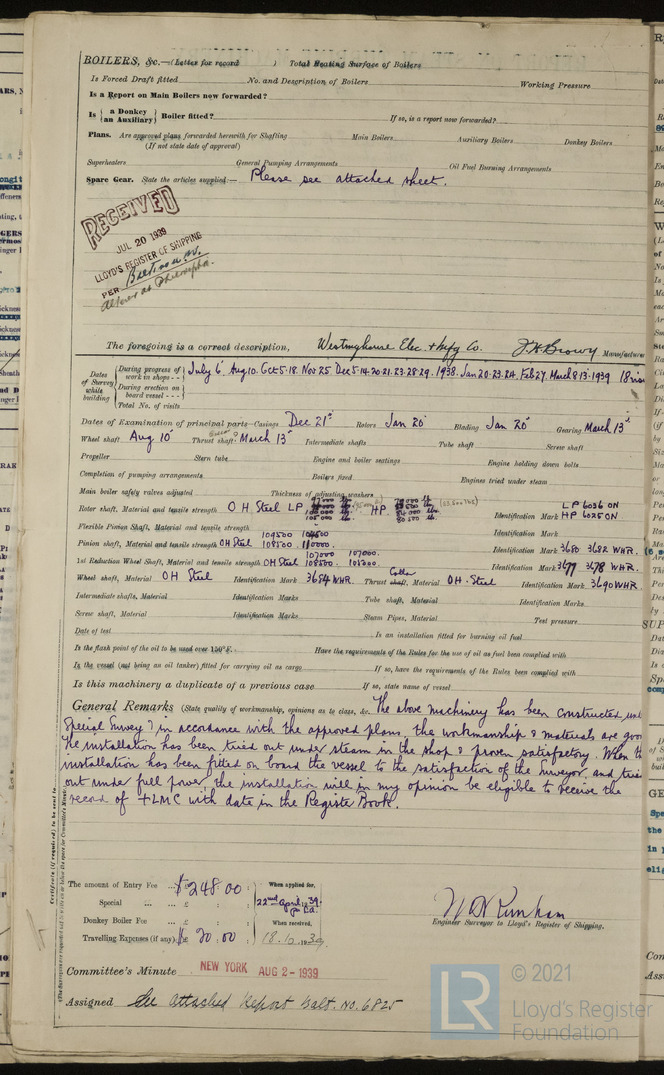 BOILERS, &c.—(Letter for record ) Total Heating Surface of Boilers
Is Forced Draft fitted No. and Description of Boilers Working Pressure
Is a Report on Main Boilers now forwarded?
Is { a Donkey / an Auxiliary } Boiler fitted? If so, is a report now forwarded?
Plans. Are approved plans forwarded herewith for Shafting Main Boilers Auxiliary Boilers Donkey Boilers
(If not state date of approval)
Superheaters General Pumping Arrangements Oil Fuel Burning Arrangements
Spare Gear. State the articles supplied:— Please see attached sheet.
RECEIVED
JUL 20 1939
LLOYD'S REGISTER OF SHIPPING
PER
The foregoing is a correct description, Westinghouse Elec. & Mfg Co. Manufacturer
Dates of Survey while building
During progress of work in shops - - July 6 Aug 10. Oct 5.18. Nov 25 Dec 5.14.20.21.23.28.29. 1938. Jan 20.23.24. Feb 27. March 8.13.1939
During erection on board vessel - - -
Total No. of visits
Dates of Examination of principal parts—Casings Dec 21st Rotors Jan 20 Blading Jan 20 Gearing March 13
Wheel shaft Aug 10 Thrust shaft March 13 Intermediate shafts Tube shaft Screw shaft
Propeller Stern tube Engine and boiler seatings Engine holding down bolts
Completion of pumping arrangements Boilers fixed Engines tried under steam
Main boiler safety valves adjusted Thickness of adjusting washers
Rotor shaft, Material and tensile strength OH Steel LP HP Identification Mark LP 6036 ON
HP 6025 ON
Flexible Pinion Shaft, Material and tensile strength Identification Mark
Pinion shaft, Material and tensile strength OH Steel 109500 108500 110000 Identification Mark 3680 3682 WHR.
1st Reduction Wheel Shaft, Material and tensile strength OH Steel 107000 107000. 108500. Identification Mark 3677 3678 WHR.
Wheel shaft, Material OH Steel Identification Mark 3684 WHR Thrust shaft, Collar Material OH. Steel Identification Mark 3690 WHR.
Intermediate shafts, Material Identification Marks Tube shaft, Material Identification Marks
Screw shaft, Material Identification Marks Steam Pipes, Material Test pressure
Date of test Is an installation fitted for burning oil fuel
Is the flash point of the oil to be used over 150°F. Have the requirements of the Rules for the use of oil as fuel been complied with
Is the vessel (not being an oil tanker) fitted for carrying oil as cargo If so, have the requirements of the Rules been complied with
Is this machinery a duplicate of a previous case If so, state name of vessel
General Remarks (State quality of workmanship, opinions as to class, &c. The above machinery has been constructed
Special Survey & in accordance with the approved plans, the workmanship & materials are good
The installation has been tried out under steam in the shop & proven satisfactory. When the
installation has been fitted on board the vessel to the satisfaction of the Surveyor, and tried
out under full power, the installation will in my opinion be eligible to receive the
record of +LMC with date in the Register Book.
The amount of Entry Fee $248.00 When applied for,
Special 22nd April 1939
Donkey Boiler Fee When received,
Travelling Expenses (if any) $20.00 18.10.1939
Engineer Surveyor to Lloyd's Register of Shipping.
Committee's Minute NEW YORK AUG 2 - 1939
Assigned See attached Report Balt. No. 6825
LR
© 2021
Lloyd's Register
Foundation